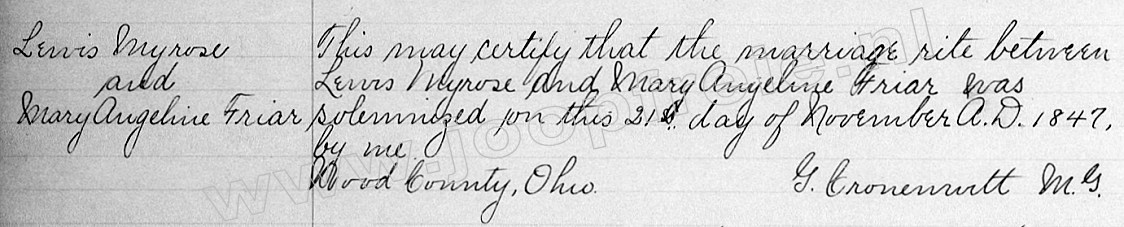 Lewis Myrose
and
Mary Angeline Friar
This may certify that the marriage rite between
Lewis Myrose and Mary Angeline Friar was
solemnized on this 21st. day of November A.D. 1847,
by me
Wood County, Ohio. G. Cronenwitt M.G.
www.joopnroje.nl